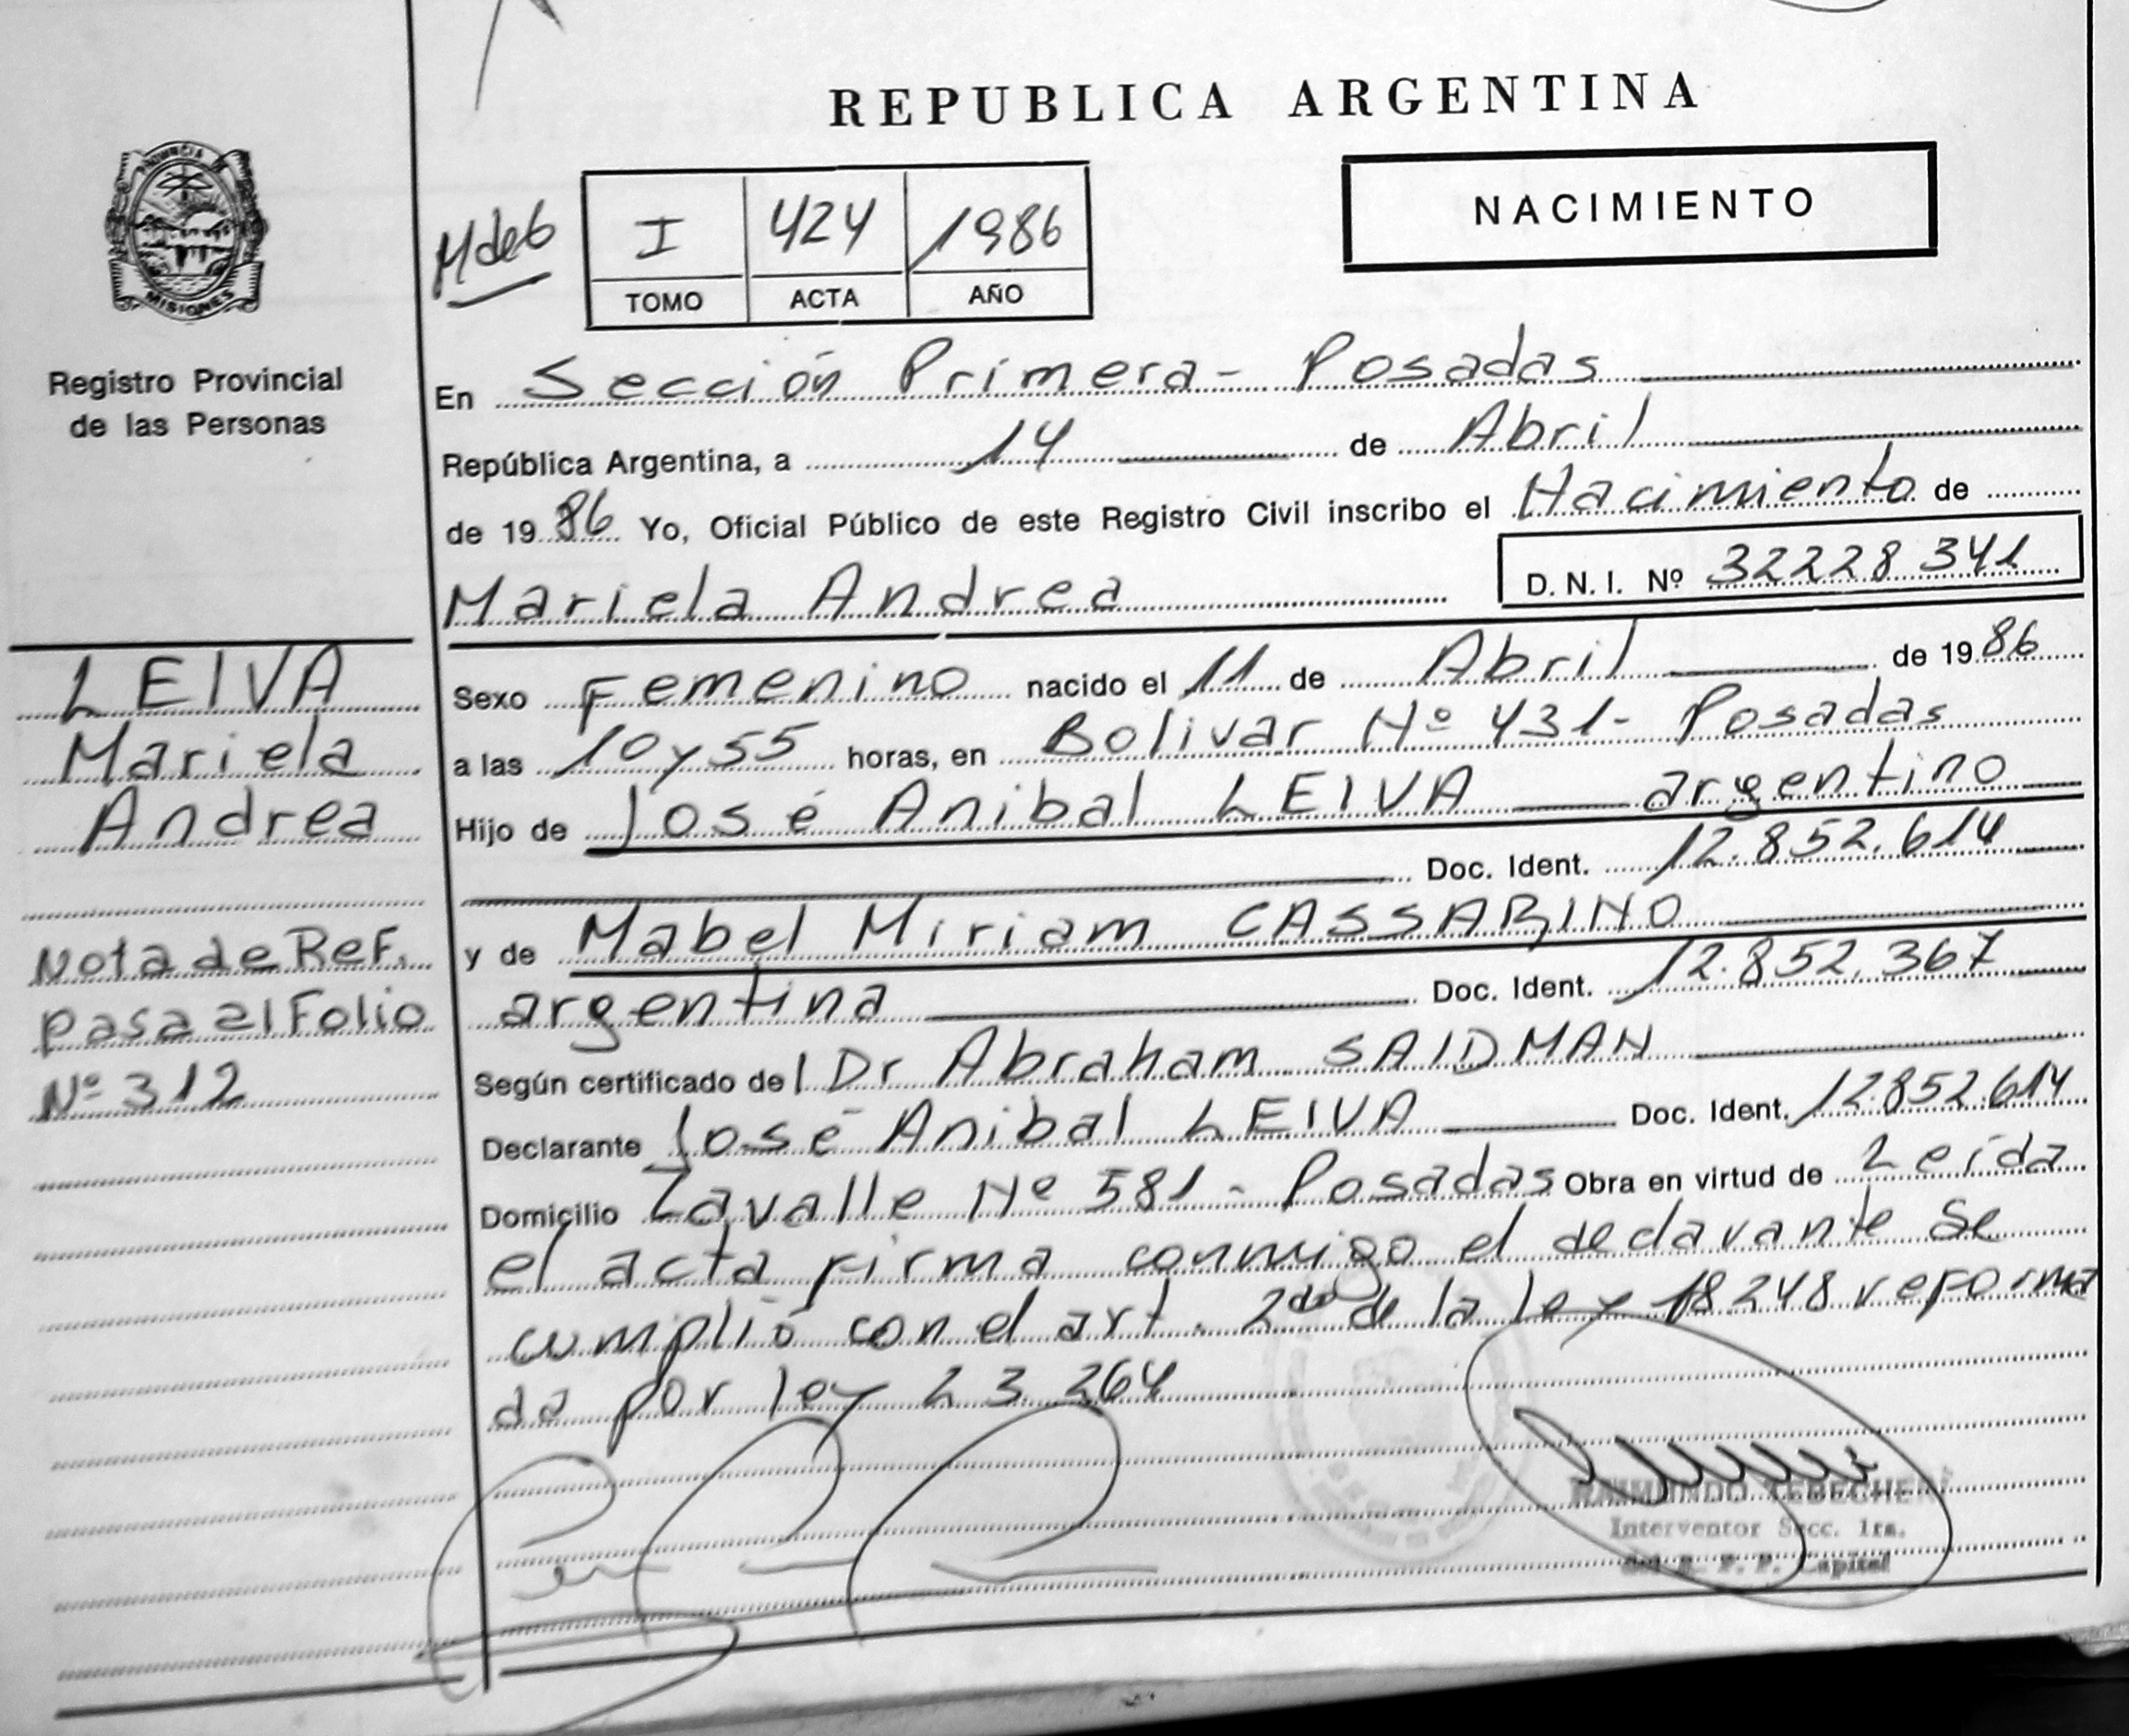 REPUBLICA ARGENTINA
PROVINCIA
MISIONES
Registro Provincial
de las Personas
I 424 1986
TOMO ACTA AÑO
NACIMIENTO
En Sección Primera - Posadas
República Argentina, a 14 de Abril
de 1986 Yo, Oficial Público de este Registro Civil inscribo el Nacimiento de
Mariela Andrea D. N. I. Nº 32228 341
LEIVA
Mariela
Andrea
Nota de Ref.
pasa al Folio
Nº 312
Sexo Femenino nacido el 11 de Abril de 1986
a las 10 y 55 horas, en Bolivar Nº 431 - Posadas
Hijo de José Anibal LEIVA argentino
Doc. Ident. 12.852.614
y de Mabel Miriam CASSARINO
argentina Doc. Ident. 12.852.367
Según certificado del Dr Abraham SAIDMAN
Declarante José Anibal LEIVA Doc. Ident. 12.852.614
Domicilio Lavalle Nº 581 - Posadas Obra en virtud de Leída
el acta firma conmigo el declarante Se
cumplió con el art. 2do de la ley 18248 reforma
da por ley 23.264
Interventor Secc. 1ra.
del R. P. P. Capital